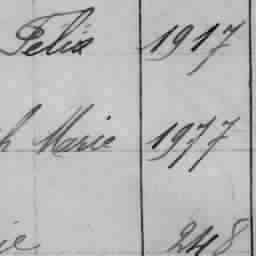 Felix 1917
h Marie 1977
ie 248